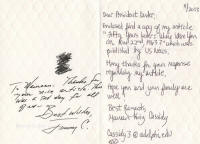 To Maureen: Thanks for
your nice article. That
was a sad day for all
of us.
Best wishes,
Jimmy C.
11/2023
Dear President Carter,
Enclosed find a copy of my article
"Fifty Years Later: Where Were You
on Nov 22nd 1963?" which was
published by US News.
Many thanks for your response
regarding my article.
Hope you and your family are
well.
Best Regards,
Maureen Cassidy
@adelphi.edu